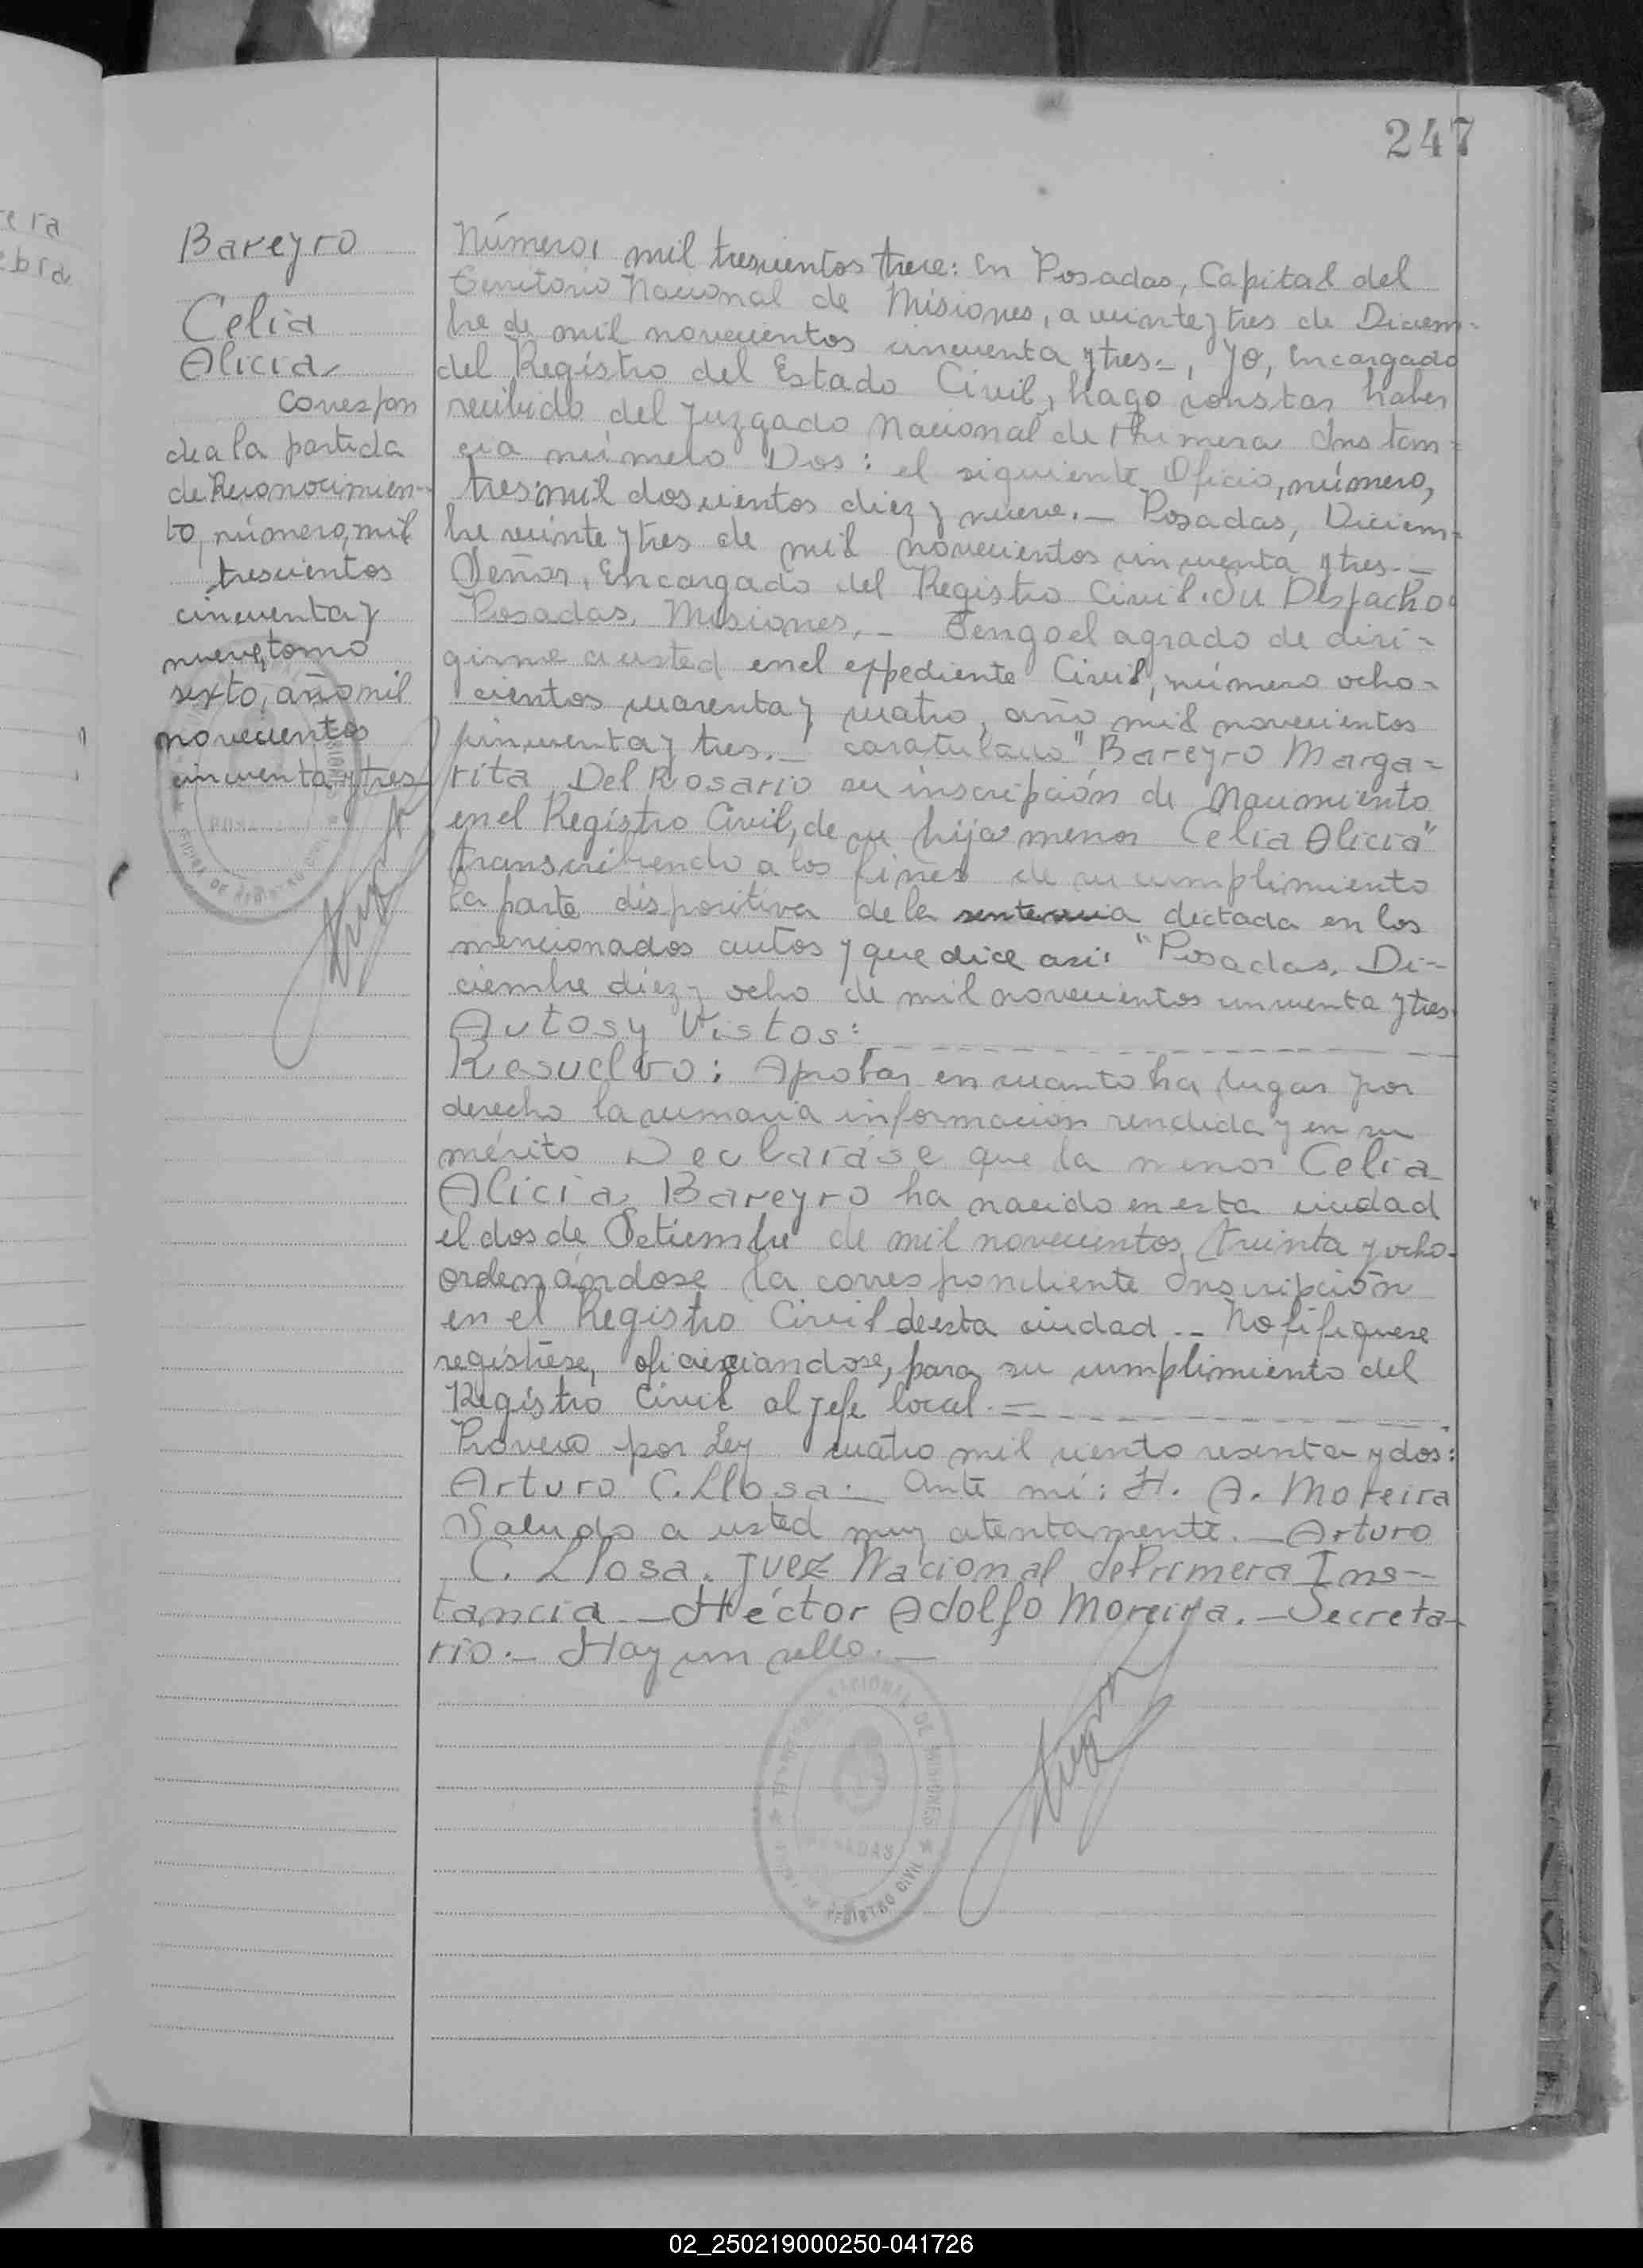 247
Bareyro
Celia
Alicia
Correspon
de a la partida
de Reconocimien-
to, número, mil
trescientos
cincuenta y
nueve, tomo
sexto, año mil
novecientos
cincuenta y tres
Número, mil trescientos trece: En Posadas, Capital del
Territorio Nacional de Misiones, a veinte y tres de Diciem-
bre de mil novecientos cincuenta y tres.-, Yo, Encargado
del Registro del Estado Civil, hago constar haber
recibido del Juzgado Nacional de Primera Instan-
cia número Dos: el siguiente Oficio, número,
tres mil doscientos diez y nueve.- Posadas, Diciem-
bre veinte y tres de mil novecientos cincuenta y tres.-
Señor, Encargado del Registro Civil. Su Despacho.
Posadas. Misiones.- Tengo el agrado de diri-
girme a usted en el expediente Civil, número ocho-
cientos cuarenta y cuatro, año mil novecientos
cincuenta y tres.- caratulado "Bareyro Marga-
rita Del Rosario su inscripción de Nacimiento
en el Registro Civil, de su hija menor Celia Alicia"
transcribiendo a los fines de su cumplimiento
la parte dispositiva de la sentencia dictada en los
mencionados autos y que dice asi: "Posadas, Di-
ciembre diez y ocho de mil novecientos cincuenta y tres.
Autos y Vistos:
Resuelvo: Aprobar en cuanto ha lugar por
derecho la sumaria información rendida y en su
mérito Declaráse que la menor Celia
Alicia Bareyro ha nacido en esta ciudad
el dos de Setiembre de mil novecientos treinta y ocho.
ordenándose la correspondiente Inscripción
en el Registro Civil de esta ciudad.- Notifiquese
registrese, para su cumplimiento del
Registro Civil al jefe local.-
Proveo por Ley cuatro mil ciento sesenta y dos:
Arturo C. Llosa.- Ante mi: H. A. Moreira
Saludo a usted muy atentamente.- Arturo
C. Llosa. Juez Nacional de Primera Ins-
tancia - Héctor Adolfo Moreira.- Secreta-
rio.- Hay un sello.-
NACIONAL DE MISIONES
POSADAS
REGISTRO CIVIL
02_250219000250-041726